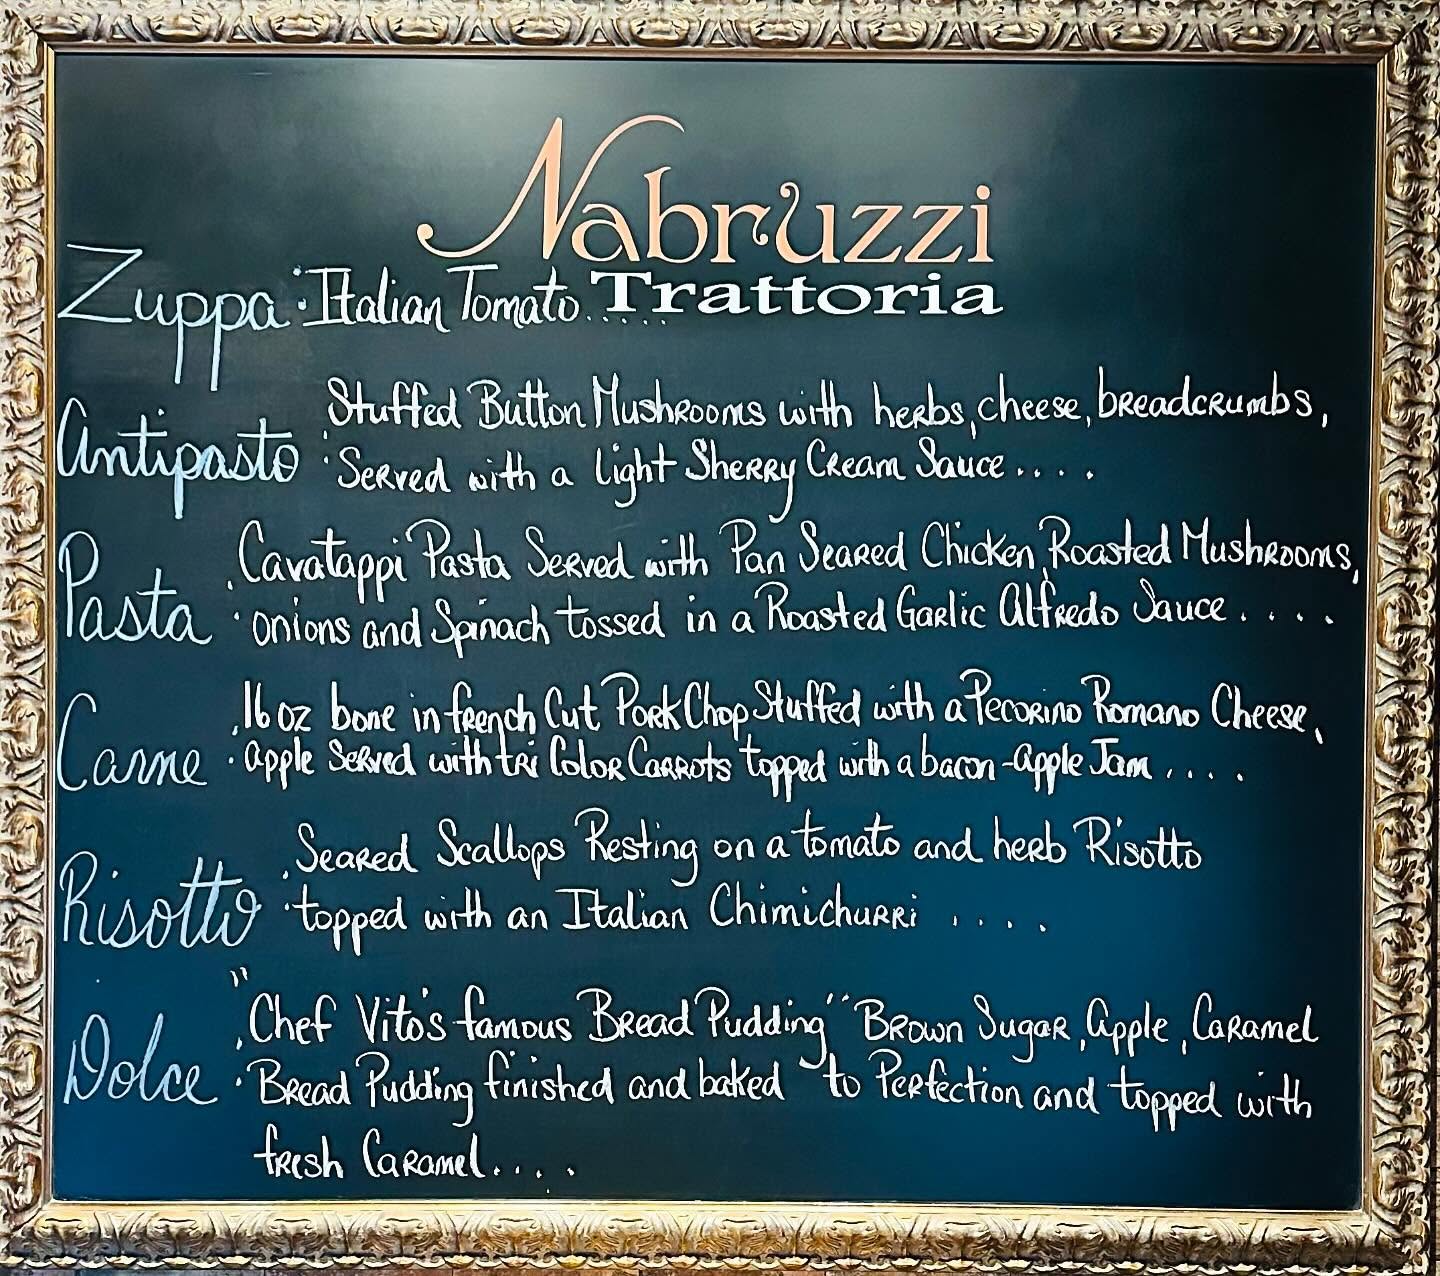 Nabruzzi
Trattoria
Zuppa: Italian Tomato.....
Antipasto: Stuffed Button Mushrooms with herbs, cheese, breadcrumbs,
Served with a light Sherry Cream Sauce....
Pasta: Cavatappi Pasta Served with Pan Seared Chicken, Roasted Mushrooms,
onions and Spinach tossed in a Roasted Garlic Alfredo Sauce....
Carne: 16 oz bone in french Cut Pork Chop Stuffed with a Pecorino Romano Cheese,
apple Served with tri Color Carrots topped with a bacon-apple Jam....
Risotto: Seared Scallops Resting on a tomato and herb Risotto
topped with an Italian Chimichurri ....
Dolce: "Chef Vito's famous Bread Pudding" Brown Sugar, Apple, Caramel
Bread Pudding finished and baked to Perfection and topped with
fresh Caramel....